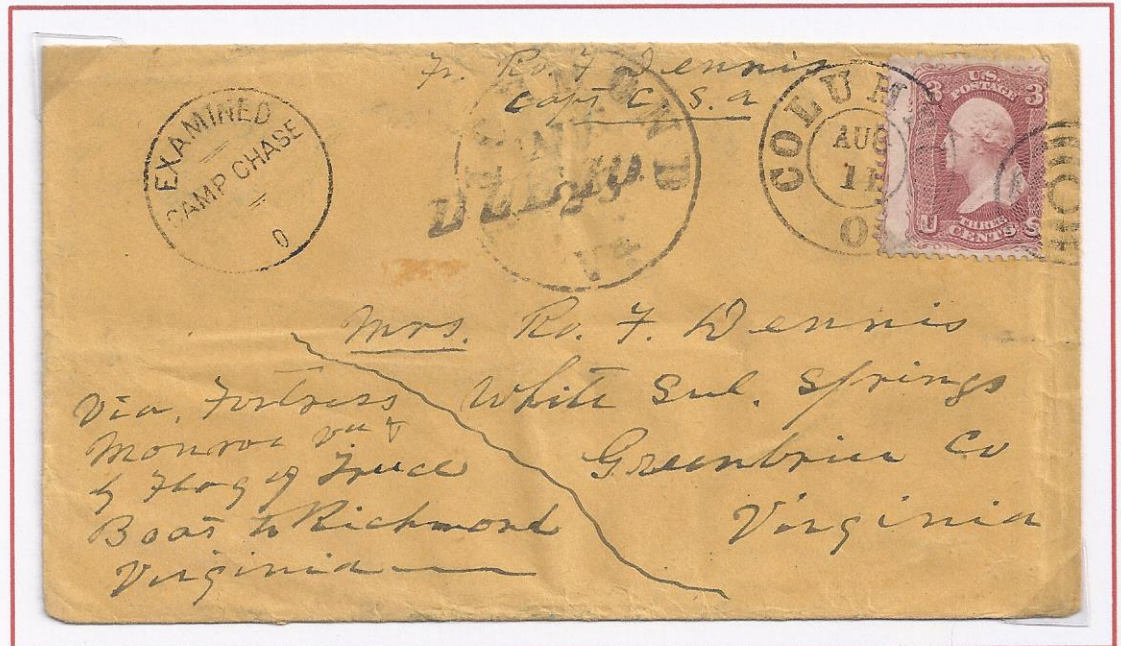 Fr. Ro. F Dennis
Capt C. S. a
EXAMINED
CAMP CHASE
O
RICHMOND
Va
COLUMBUS
AUG
O
3 U.S. 3
POSTAGE
U THREE S
CENTS
Mrs. Ro. F. Dennis
White Sul. Springs
Greenbrier Co
Virginia
Via, Fortress
Monroe va &
by Flag of Truce
Boat to Richmond
Virginia